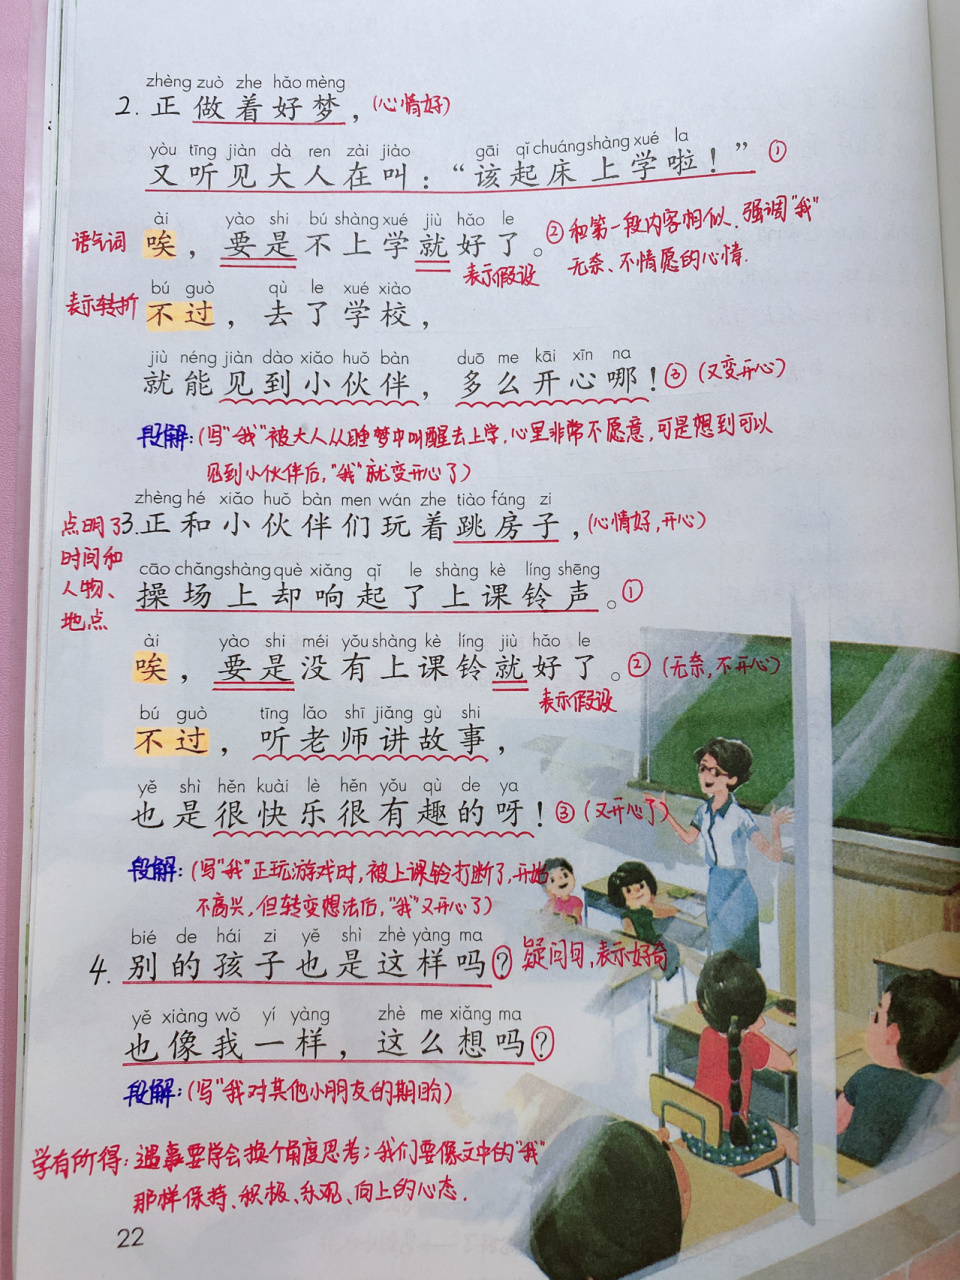 zhèng zuò zhe hǎo mèng
2. 正做着好梦，(心情好)
yòu tīng jiàn dà ren zài jiào gāi qǐ chuáng shàng xué la
又听见大人在叫：“该起床上学啦！” ①
ài yào shi bú shàng xué jiù hǎo le
语气词 唉，要是不上学就好了。 ②和第一段内容相似. 强调"我"
表示假设 无奈、不情愿的心情.
bú guò qù le xué xiào
表示转折 不过，去了学校，
jiù néng jiàn dào xiǎo huǒ bàn duō me kāi xīn na
就能见到小伙伴，多么开心哪！③ (又变开心)
段解：(写"我"被大人从睡梦中叫醒去上学,心里非常不愿意,可是想到可以
见到小伙伴后,"我"就变开心了)
zhèng hé xiǎo huǒ bàn men wán zhe tiào fáng zi
3.正和小伙伴们玩着跳房子，(心情好,开心)
点明了
时间和
人物、
地点
cāo chǎng shàng què xiǎng qǐ le shàng kè líng shēng
操场上却响起了上课铃声。①
ài yào shi méi yǒu shàng kè líng jiù hǎo le
唉，要是没有上课铃就好了。② (无奈,不开心)
表示假设
bú guò tīng lǎo shī jiǎng gù shi
不过，听老师讲故事，
yě shì hěn kuài lè hěn yǒu qù de ya
也是很快乐很有趣的呀！③ (又开心了)
段解：(写"我"正玩游戏时,被上课铃打断了,开始
不高兴,但转变想法后,"我"又开心了)
bié de hái zi yě shì zhè yàng ma
4. 别的孩子也是这样吗？疑问句,表示好奇
yě xiàng wǒ yí yàng zhè me xiǎng ma
也像我一样，这么想吗？
段解：(写"我对其他小朋友的期盼)
学有所得：遇事要学会换个角度思考；我们要像文中的"我"
那样保持、积极、乐观、向上的心态.
22